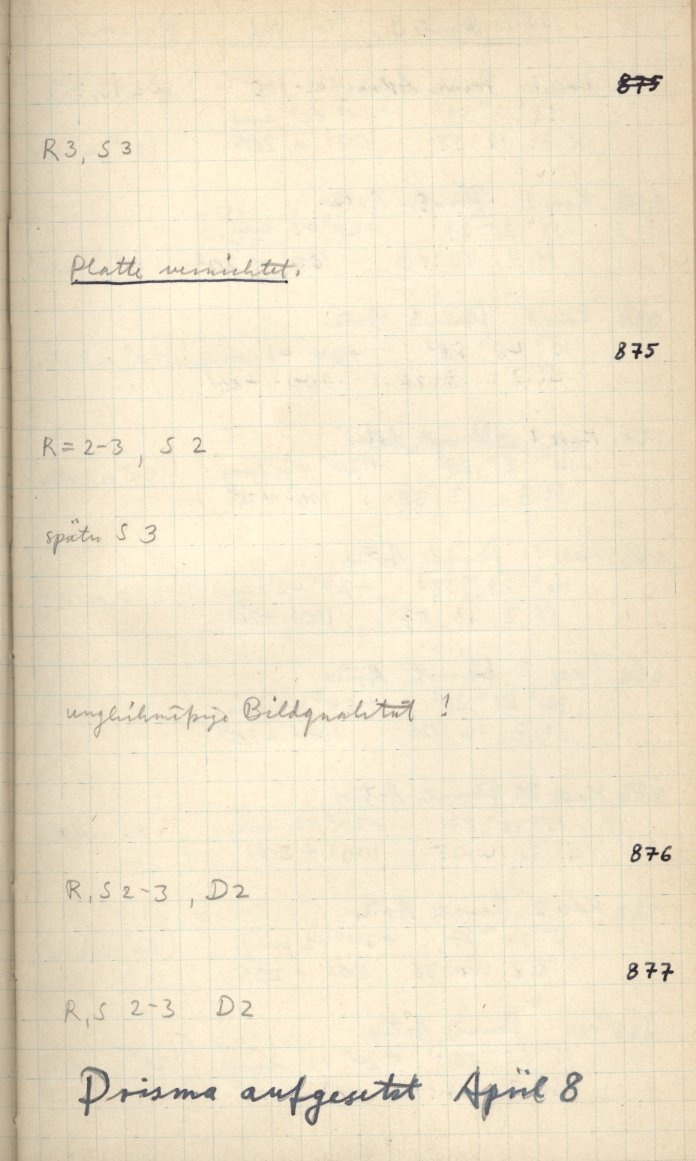 875
R3, S3
Platte vernichtet.
875
R=2-3, S 2
später S 3
ungleichmäßige Bildqualität !
876
R,S 2-3, D2
877
R,S 2-3 D2
Prisma aufgesetzt April 8